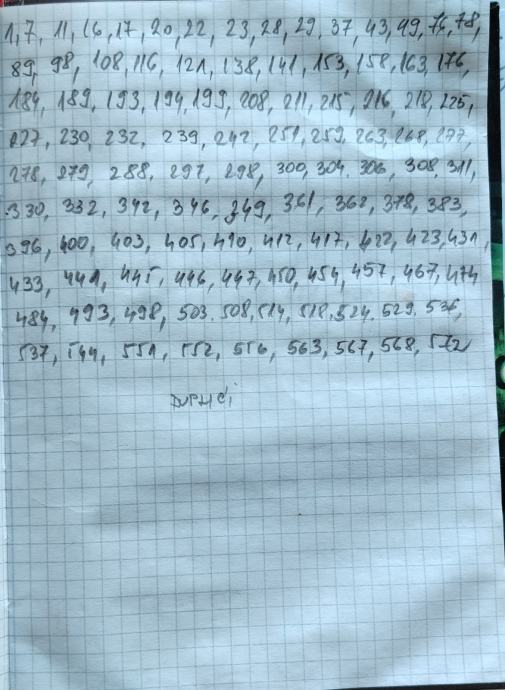 1, 7, 11, 16, 17, 20, 22, 23, 28, 29, 37, 43, 49, 76, 78,
89, 98, 108, 116, 121, 138, 141, 153, 158, 163, 176,
184, 189, 193, 194, 199, 208, 211, 215, 216, 218, 225,
227, 230, 232, 239, 242, 251, 259, 263, 268, 277,
278, 279, 288, 297, 298, 300, 304, 306, 308, 311,
330, 332, 342, 346, 349, 361, 362, 378, 383,
396, 400, 403, 405, 410, 412, 417, 422, 423, 431,
433, 441, 445, 446, 447, 450, 454, 457, 467, 474
484, 493, 498, 503, 508, 514, 518, 524, 529, 536,
537, 544, 551, 552, 556, 563, 567, 568, 572